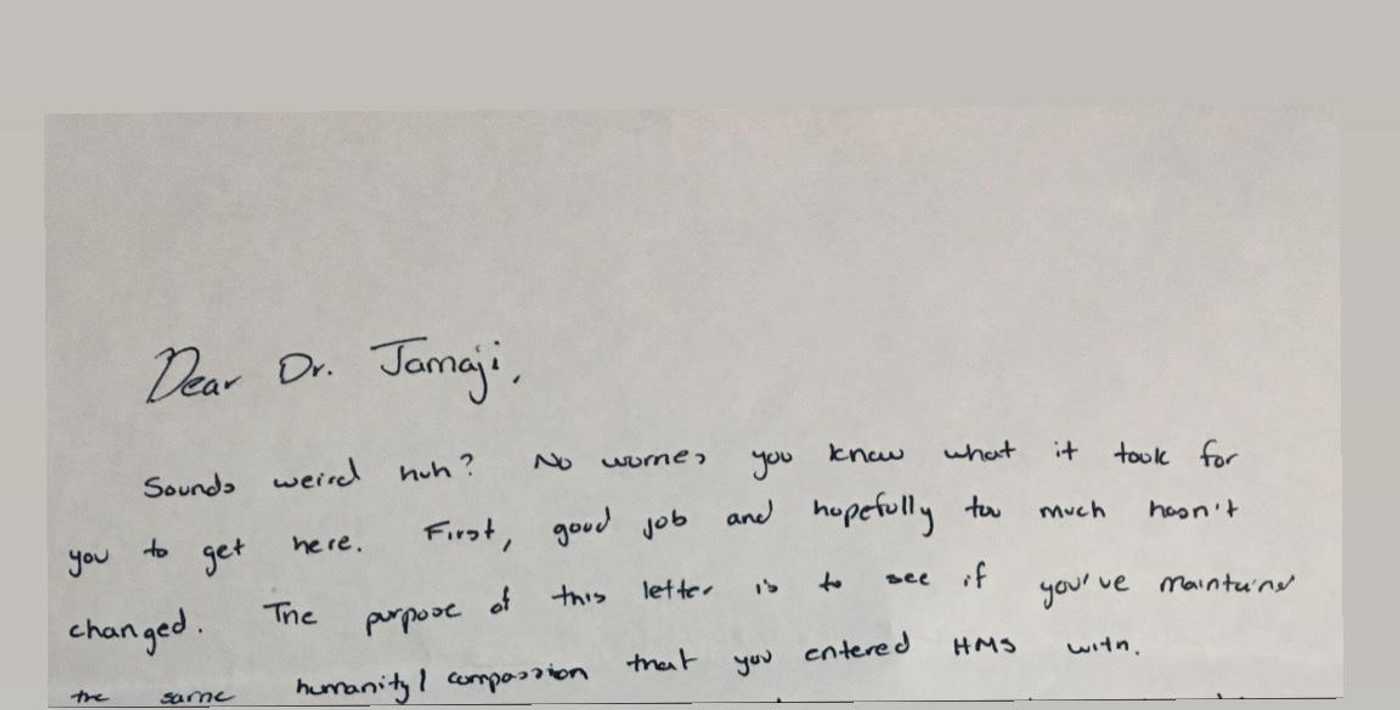 Dear Dr. Jamaji,
Sounds weird huh? No worries you know what it took for
you to get here. First, good job and hopefully too much hasn't
changed. The purpose of this letter is to see if you've maintained
the same humanity/compassion that you entered HMS with.